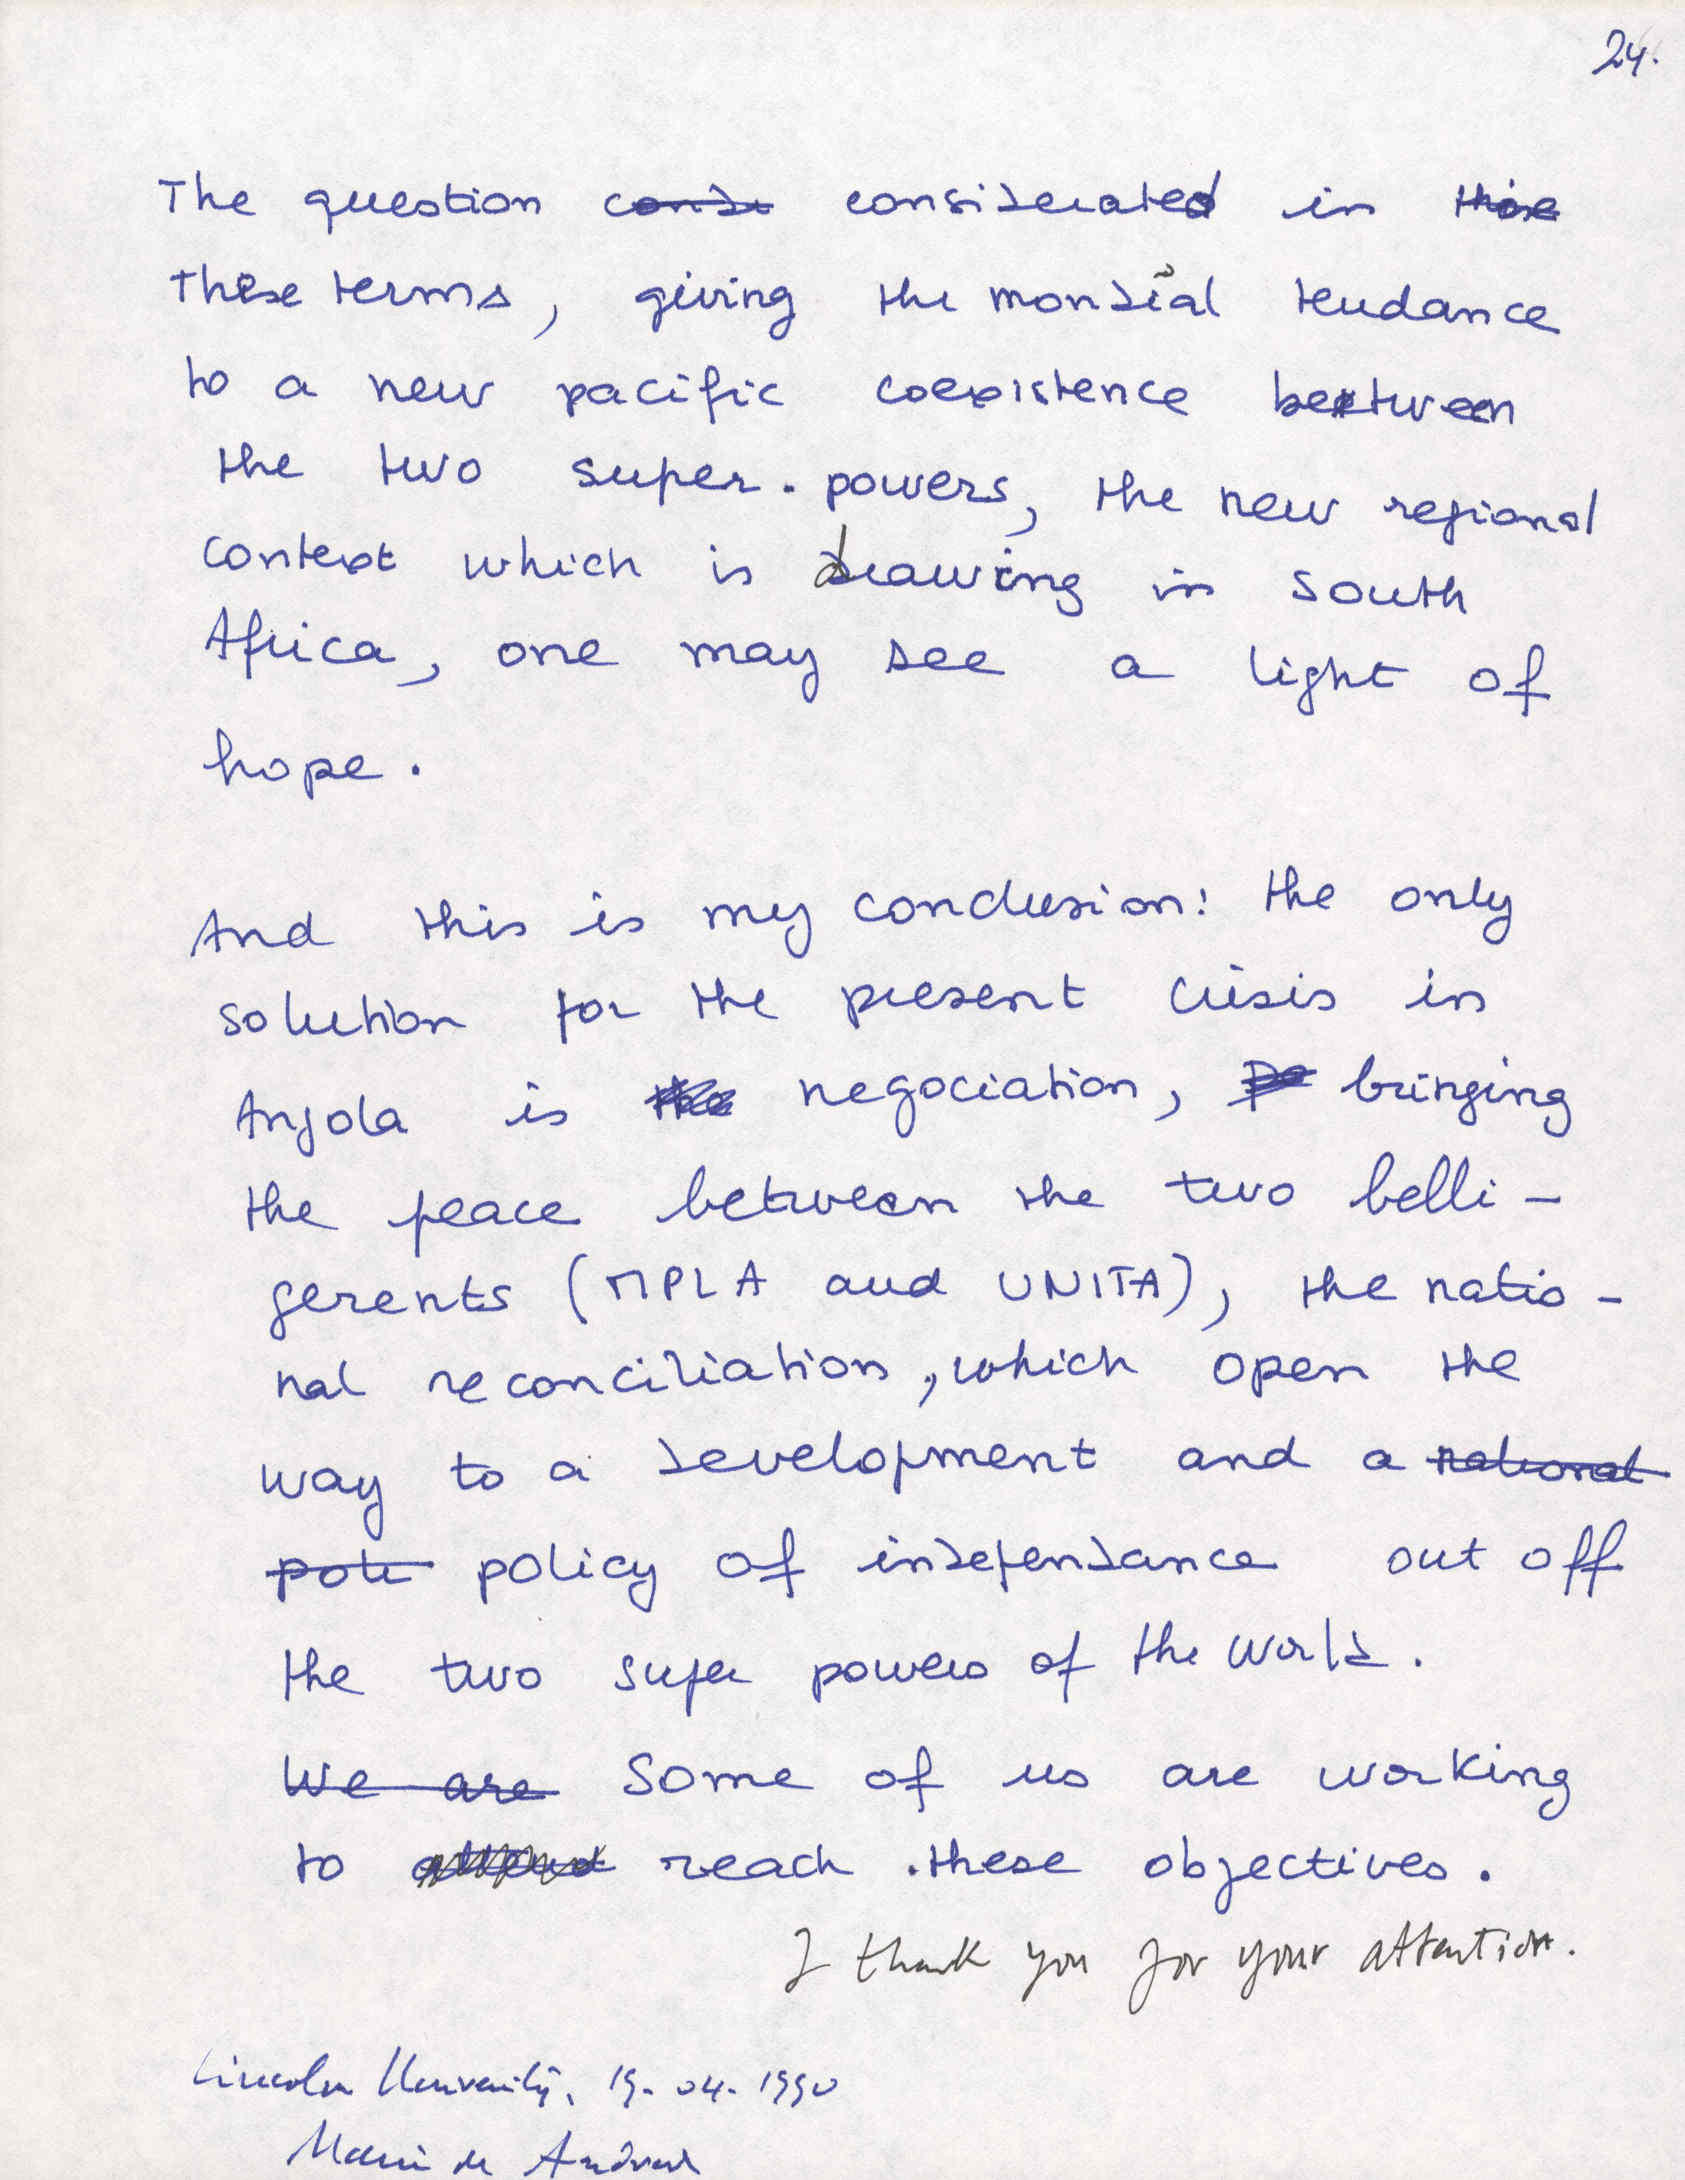 24.
The question considerated in
These terms, giving the mondial tendance
to a new pacific coexistence between
the two super-powers, the new regional
context which is drawing in south
Africa, one may see a light of
hope.
And this is my conclusion: the only
solution for the present crisis in
Angola is negociation, bringing
the peace between the two belli-
gerents (MPLA and UNITA), the natio-
nal reconciliation, which open the
way to a development and a national
policy of independance out off
the two super powers of the world.
We are Some of us are working
to reach these objectives.
I thank you for your attention.
Lincoln University, 19.04.1990
de Andrade